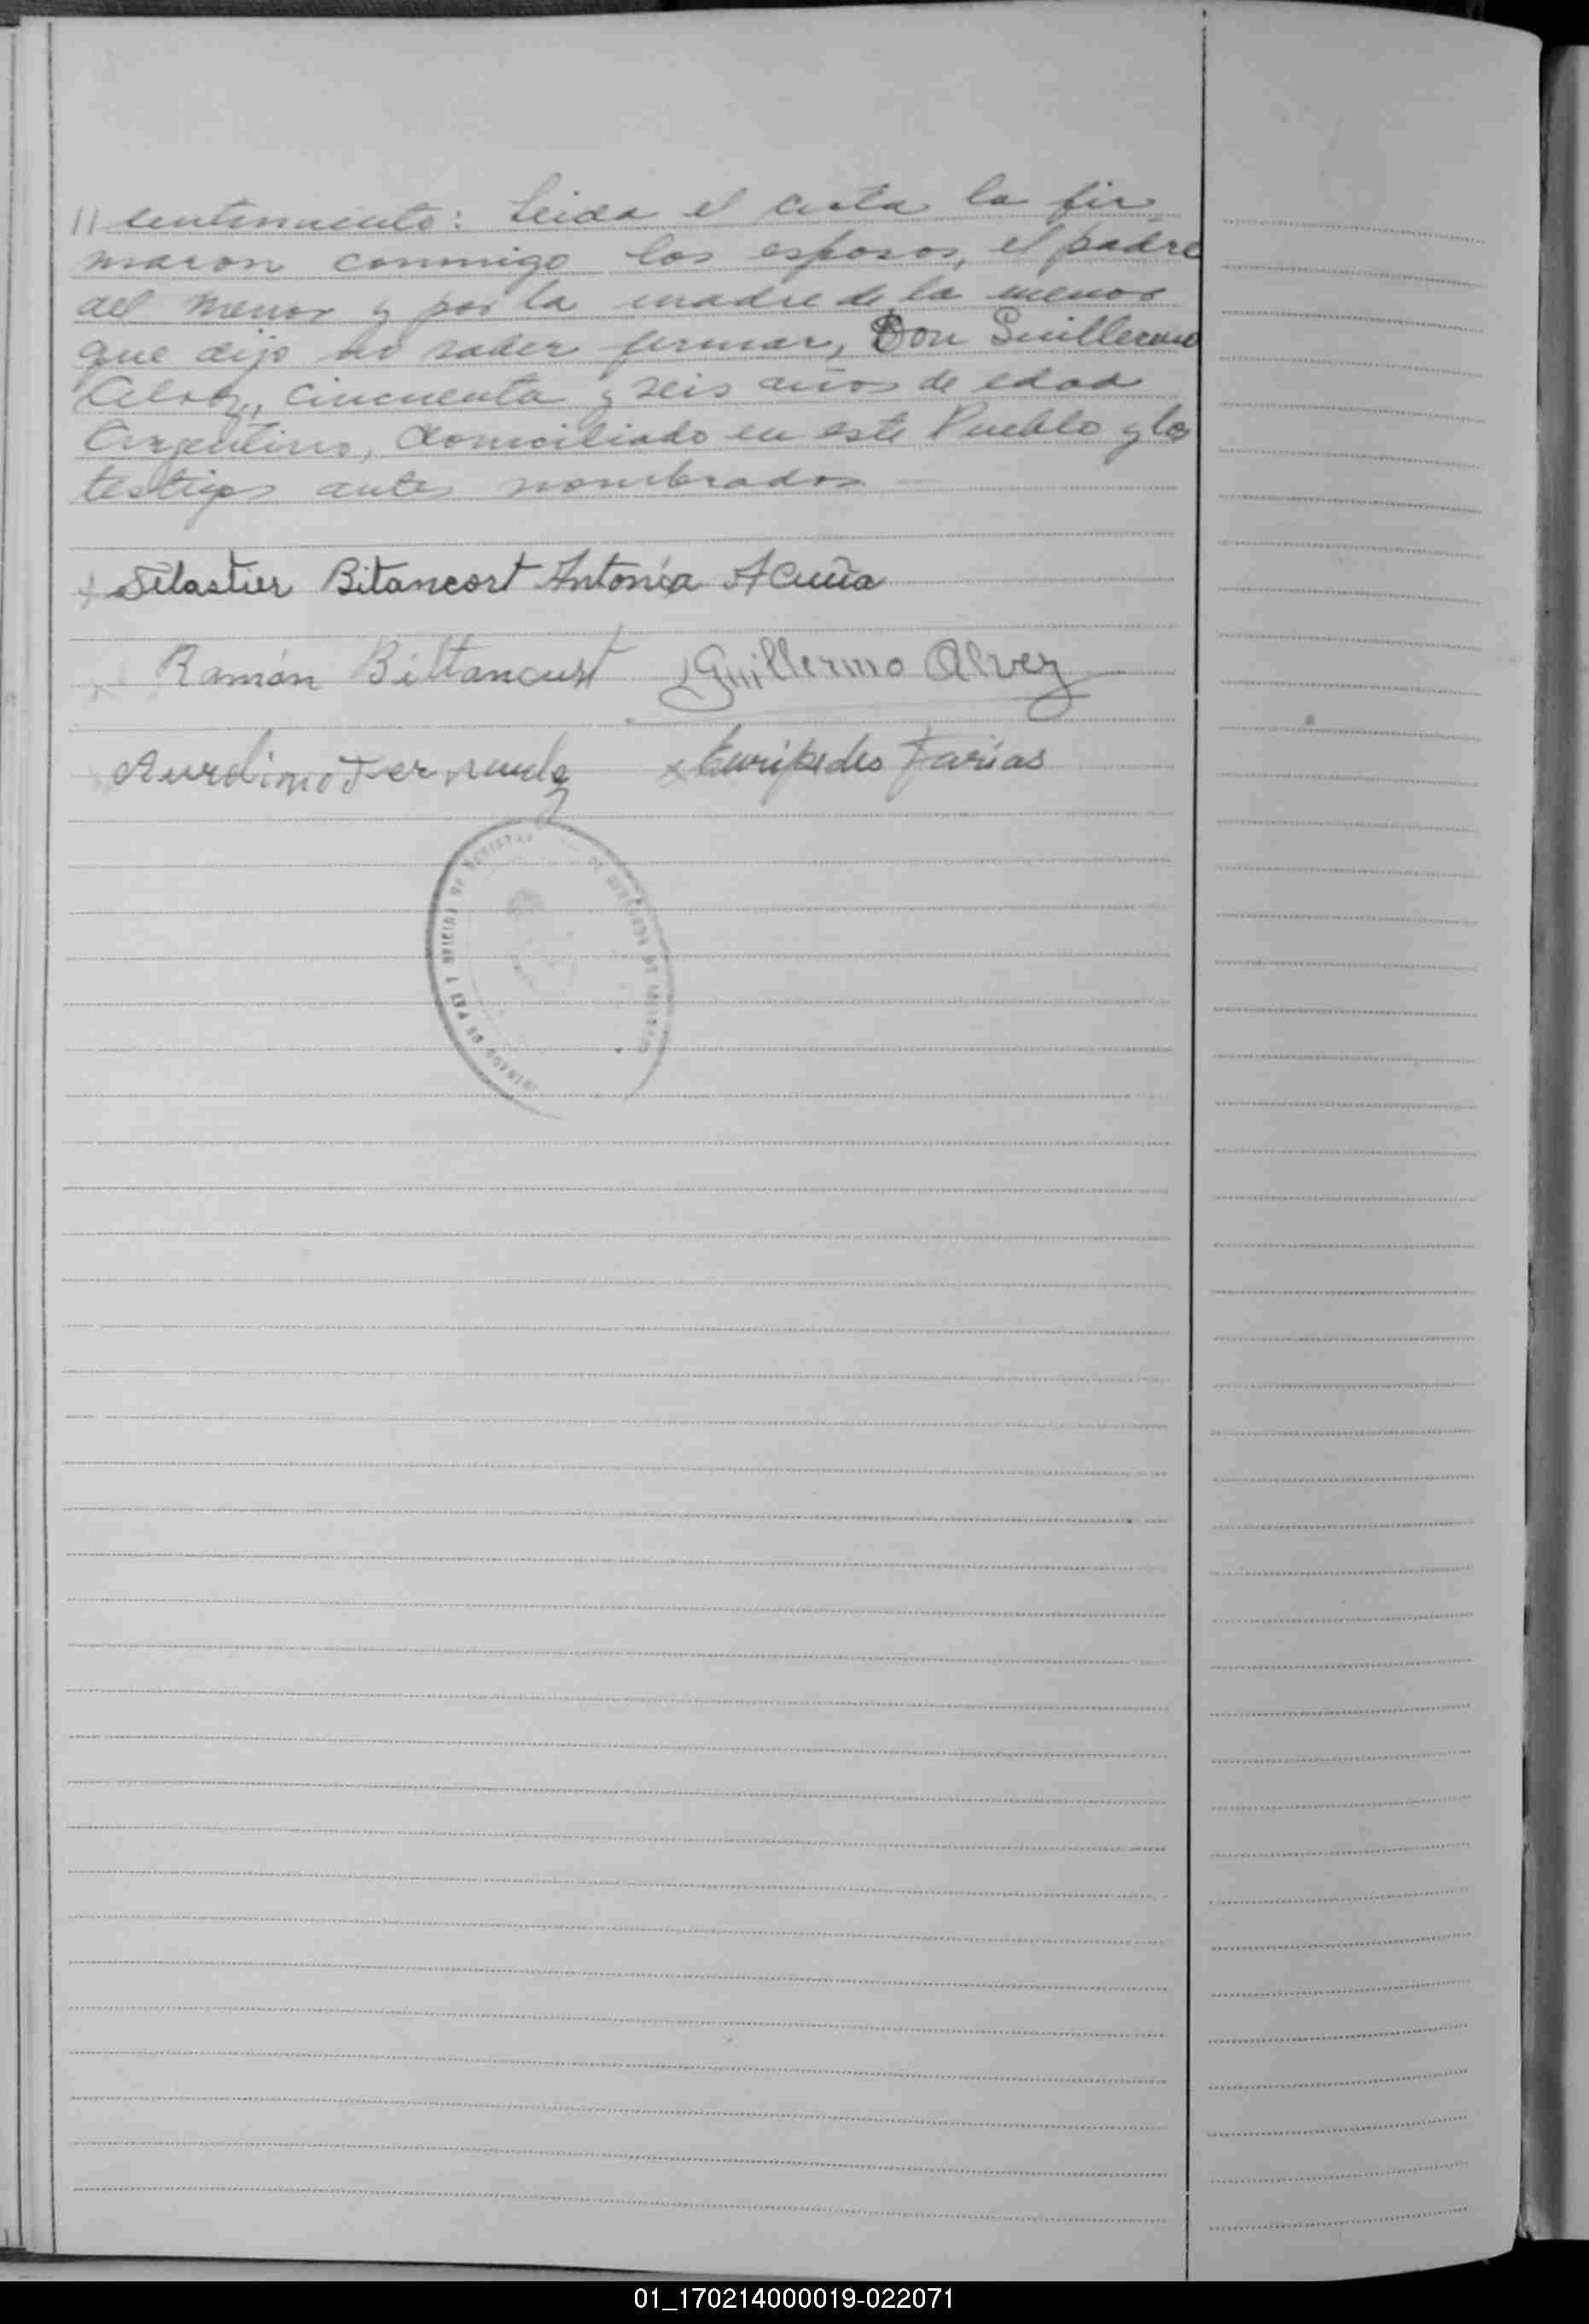 // sentimiento: Leida el acta la fir_
maron conmigo los esposos, el padre
del menor y por la madre de la menor
que dijo no saber firmar, Don Guillermo
Alvez, cincuenta y seis años de edad
Argentino, domiciliado en este Pueblo y los
testigos antes nombrados
Bitancort Antonia Acuña
Ramón Bittancurt Guillermo Alvez
x Euripedes Farias
JUZGADO DE PAZ Y OFICINA DE REGISTRO
01_170214000019-022071